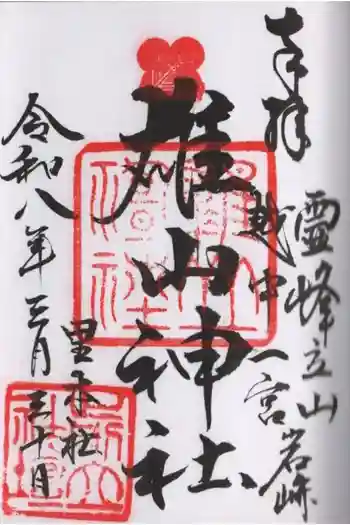 奉拝
霊峰立山
岩峅
越中一宮
雄山神社
令和八年三月三十日